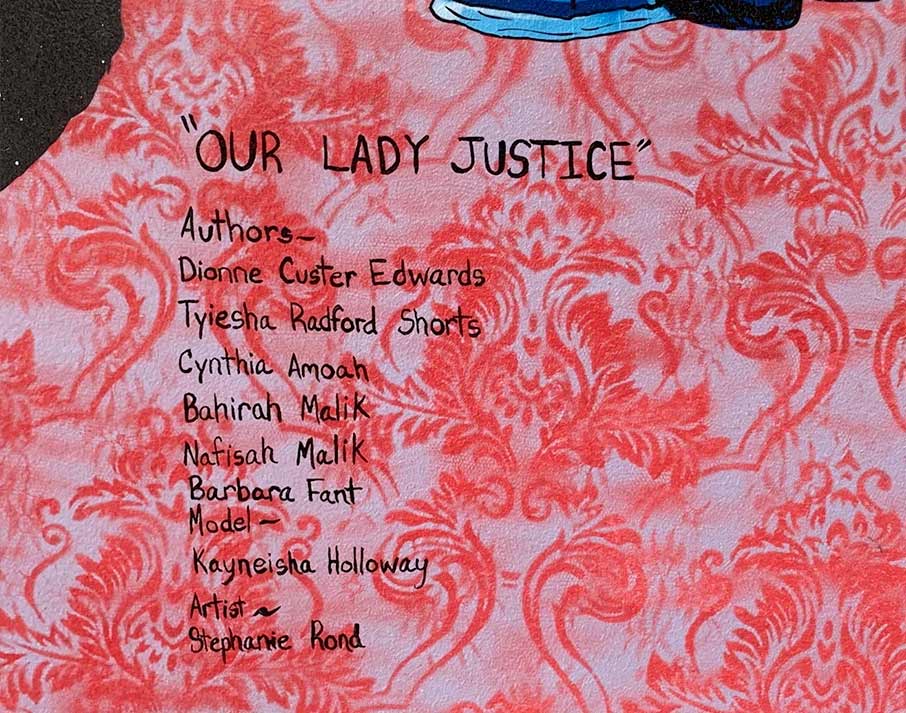 "OUR LADY JUSTICE"
Authors—
Dionne Custer Edwards
Tyiesha Radford Shorts
Cynthia Amoah
Bahirah Malik
Nafisah Malik
Barbara Fant
Model—
Kayneisha Holloway
Artist~
Stephanie Rond